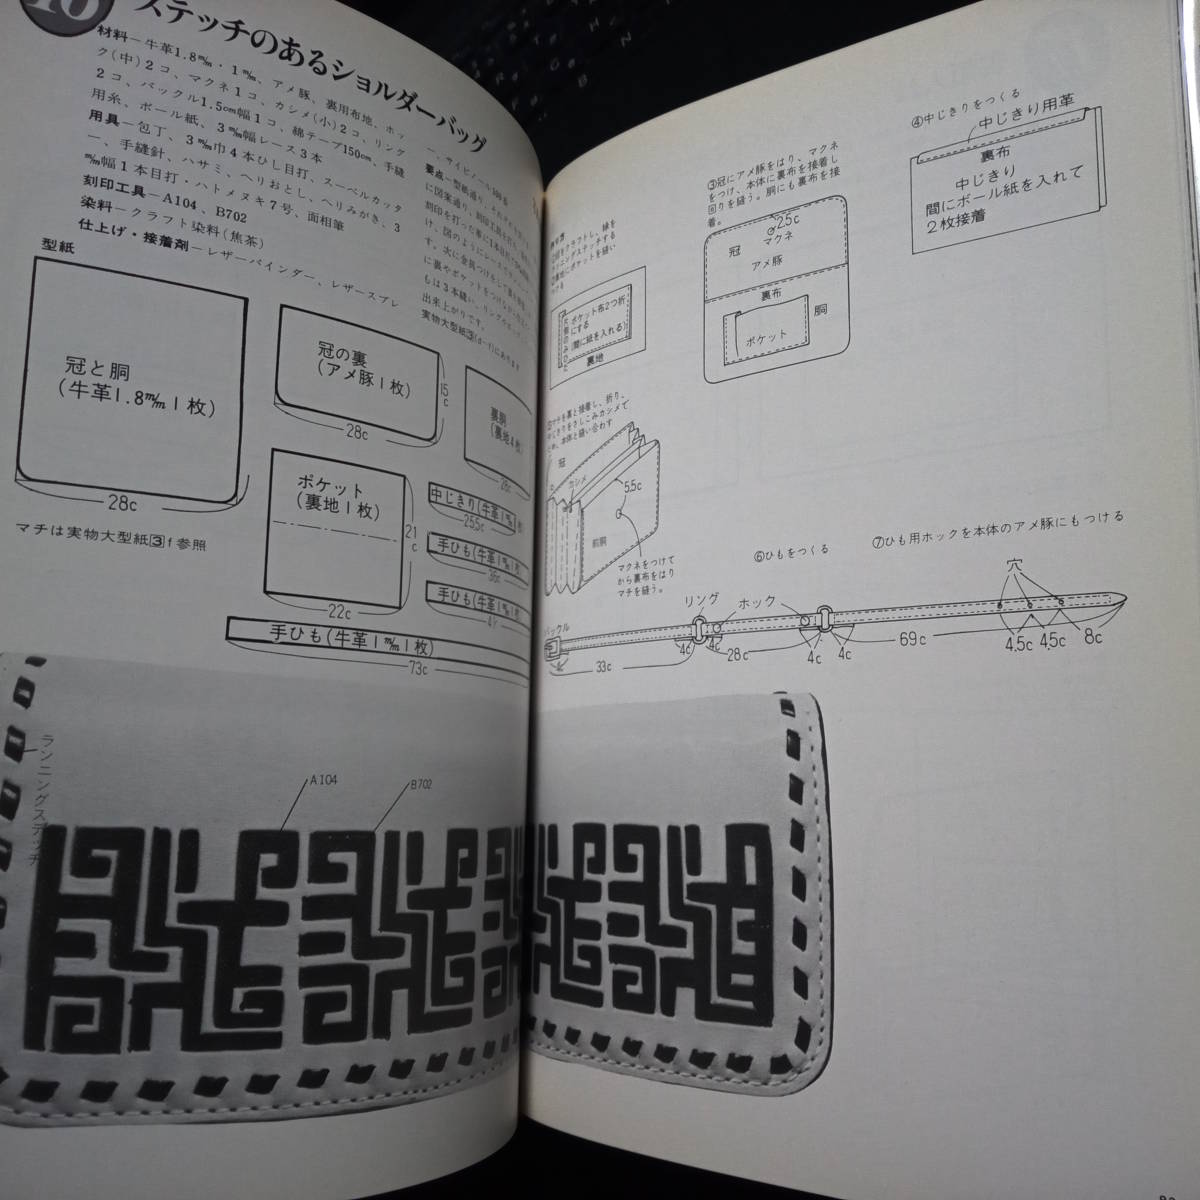 ステッチのあるショルダーバッグ
材料－牛革1.8m/m・1m/m、アメ豚、裏用布地、ホッ
ク(中)2コ、マクネ1コ、カシメ(小)2コ、リング
2コ、バックル1.5cm幅1コ、綿テープ150cm、手縫
用糸、ボール紙、3m/m幅レース3本
用具－包丁、3m/m巾4本ひし目打、スーベルカッタ
ー、手縫針、ハサミ、へりおとし、へりみがき、3
m/m幅1本目打・ハトメヌキ7号、面相筆
刻印工具－A104、B702
染料－クラフト染料(焦茶)
仕上げ・接着剤－レザーバインダー、レザースプレ
ー、サイビノール100番
出来上がりです。
型紙
冠と胴
(牛革1.8m/m1枚)
28c
マチは実物大型紙3f参照
冠の裏
(アメ豚1枚)
15c
28c
裏胴
(裏地4枚)
28c
ポケット
(裏地1枚)
21c
22c
中じきり(牛革1m/m1枚)
25.5c
手ひも(牛革1m/m1枚
36c
手ひも(牛革1m/m1枚
手ひも(牛革1m/m1枚)
73c
ランニングステッチ
A104
B702
ポケット布2つ折
にする
(間に紙を入れる)
裏地
③冠にアメ豚をはり、マクネ
をつけ、本体に裏布を接着し
回りを縫う。胴にも裏布を接
着。
2.5c
冠
マクネ
アメ豚
裏布
ポケット
胴
④中じきりをつくる
中じきり用革
裏布
中じきり
間にボール紙を入れて
2枚接着
⑤マチを裏と接着し、折り、
中じきりをさしこみカシメで
とめ、本体と縫い合わす
冠
カシメ
5.5c
前胴
マクネをつけて
から裏布をはり
マチを縫う。
⑥ひもをつくる
⑦ひも用ホックを本体のアメ豚にもつける
バックル
リング
ホック
穴
33c
4c
4c
28c
4c
4c
69c
4.5c
4.5c
8c